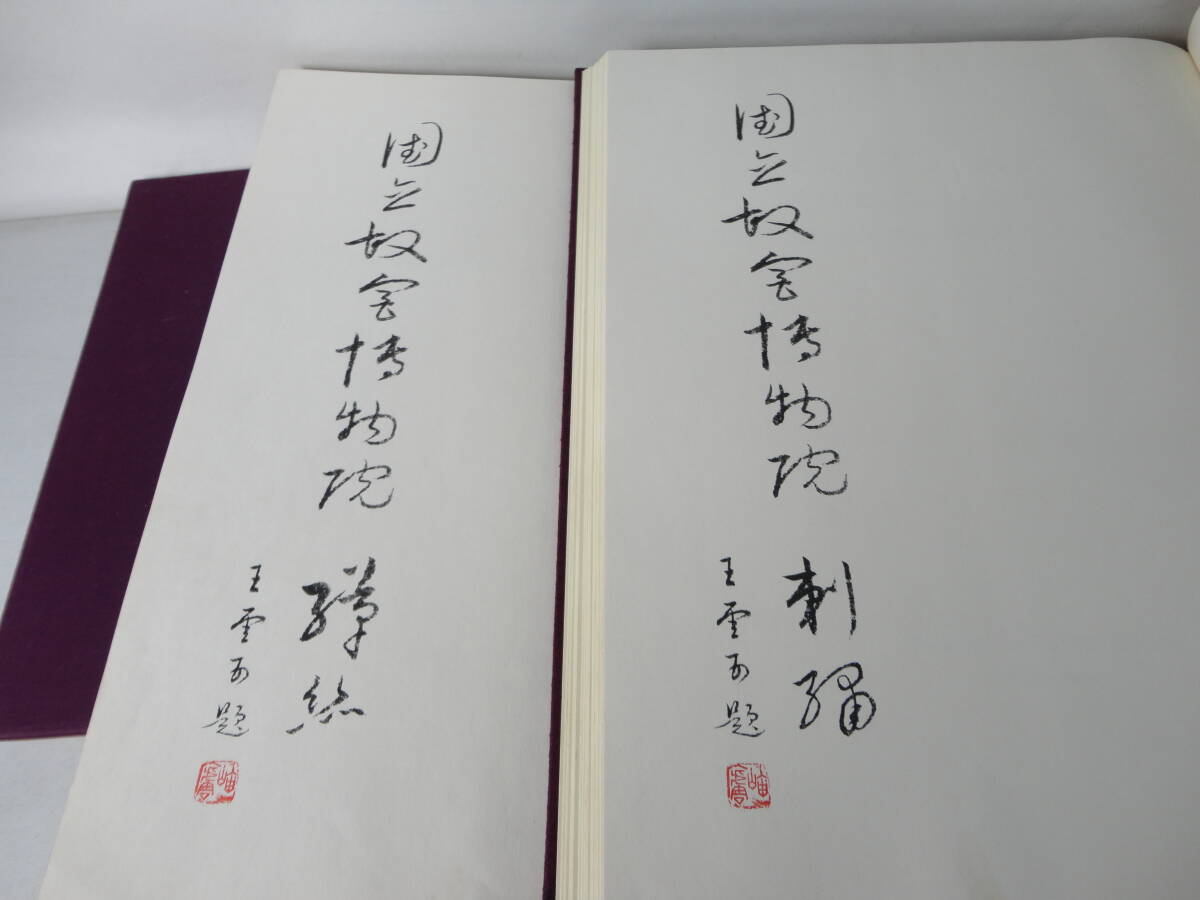 國立故宮博物院
緙絲
王雲五題
國立故宮博物院
刺繡
王雲五題